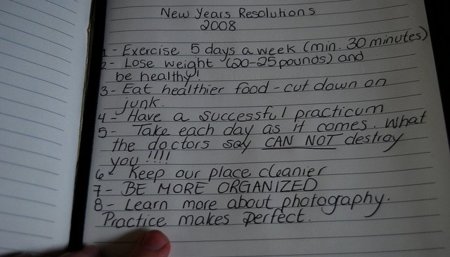 New Years Resolutions
2008
1- Exercise 5 days a week (min. 30 minutes)
2- Lose weight (20-25 pounds) and
be healthy!
3- Eat healthier food - cut down on
junk.
4- Have a successful practicum
5- Take each day as it comes. What
the doctors say CAN NOT destroy
you!!!!
6- Keep our place cleanier
7- BE MORE ORGANIZED
8- Learn more about photogaphy.
Practice makes perfect.